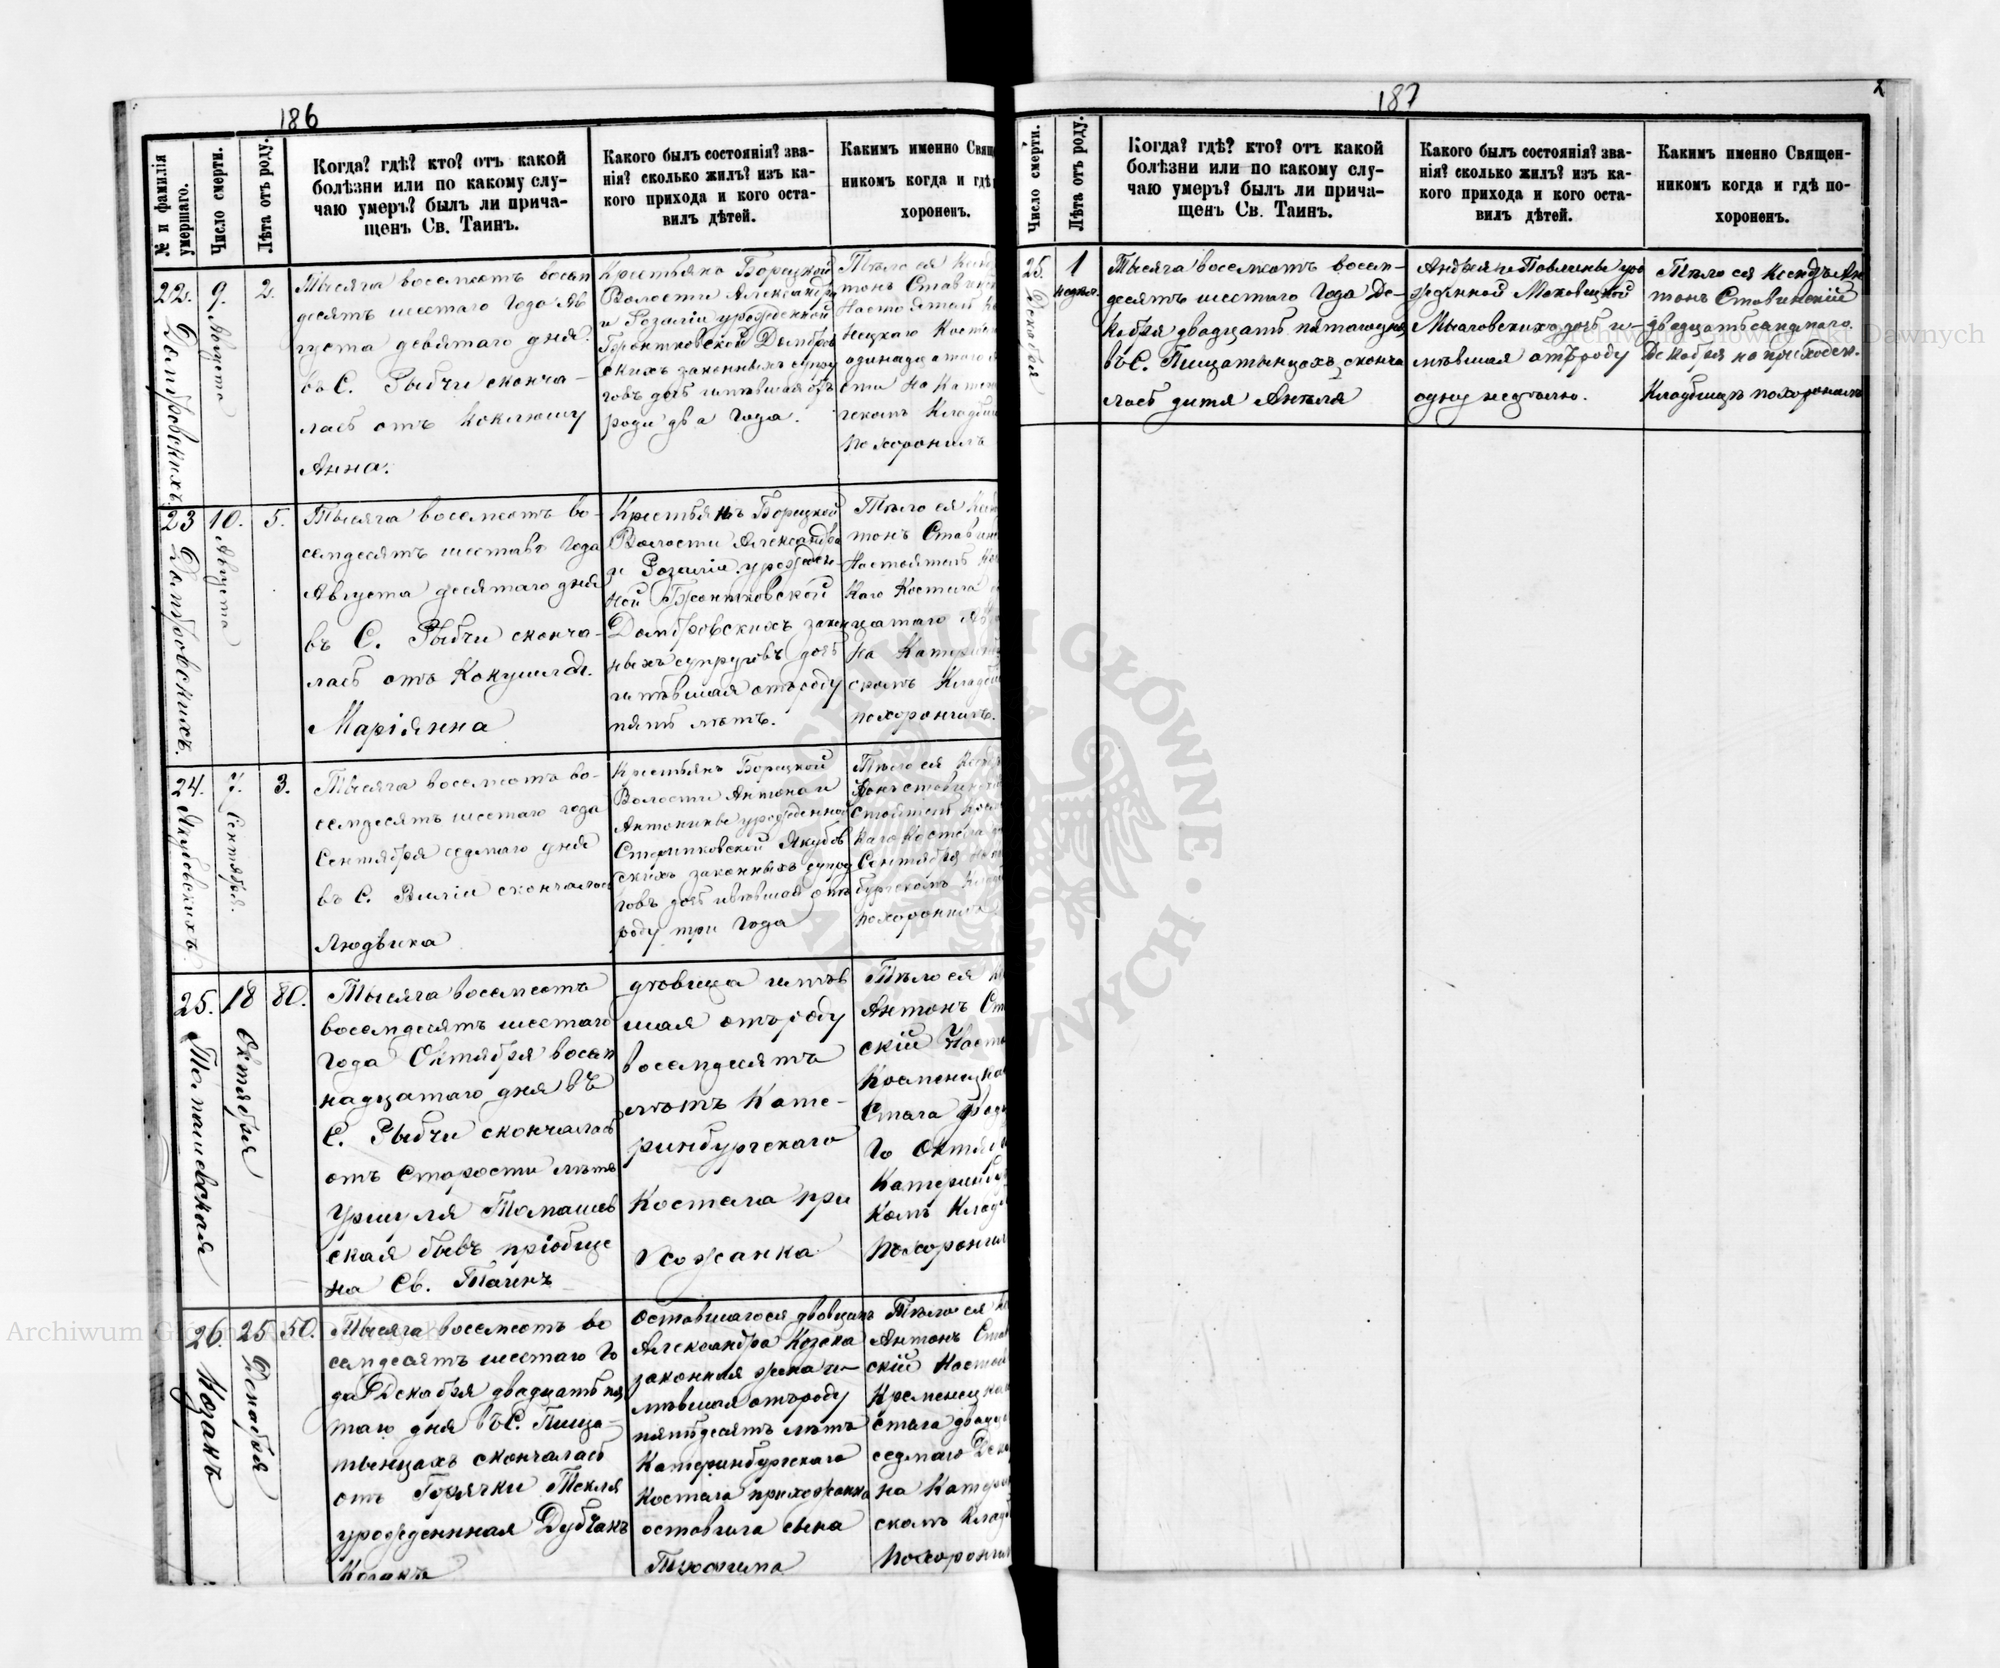 186
№ и фамилія умершаго.
Число смерти.
Лѣта отъ роду.
Когда? гдѣ? кто? отъ какой
болѣзни или по какому слу-
чаю умеръ? былъ ли прича-
щенъ Св. Таинъ.
Какого былъ состоянія? зва-
нія? сколько жилъ? изъ ка-
кого прихода и кого оста-
вилъ дѣтей.
Каким​ъ именно Свящ
никомъ когда и гдѣ
хороненъ.
22. Домбровскихъ
9. Августа
2.
Тысяча восемсотъ восем
десятъ шестаго Года Ав
густа девятаго дня
въ С. Рыбчи сконча-
лась отъ Коклюшу
Анна.
Крестьянъ Борецкой
Волости Александра
и Розаліи урожденной
Домбров
скихъ законныхъ супру
говъ дочь имѣвшая отъ
роди два Года.
Тѣло ея
тонъ Ставин
одинадцатого
похоронилъ
23 Домбровскихъ.
10. Августа
5.
Тысяча восемсотъ во-
семдесятъ шестаго Года
Августа десятаго дня
въ С. Рыбчи сконча-
лась отъ
Маріянна
Крестьянъ Борецкой
Волости Александра
и Розаліи урожден-
ной
Домбровскихъ закон
ныхъ супруговъ дочь
имѣвшая отъ роду
пять лѣтъ.
Тѣло ея
тонъ Ставин
Настоятель
каго Костела
цатаго
на Катерин
скомъ Кладби
похоронилъ.
24. Якубовскихъ
7. Сентября.
3.
Тысяча восемсотъ во-
семдесятъ шестаго года
Сентября седмаго дня
въ С. Виліи скончалась
Людвика
Крестьянъ Борецкой
Волости Антона и
Антонины урожденной
Якубов
скихъ законныхъ супруг
говъ дочь имѣвшая отъ
роду три Года
Тѣло ея
каго Костела
Сентября
бургскомъ Клад
похоронилъ
25. Томашевская
18 Октября
80.
Тысяча восемсотъ
восемдесятъ шестаго
Года Октября восем
надцатаго дня въ
С. Рыбчи скончалась
отъ Старости лѣтъ
Уршуля Томашев
ская бывъ пріобще
на Св. Таинъ
дковица имѣв
шая отъ роду
восемдесятъ
лѣтъ Кате-
ринбургскаго
Костела при
хожанка
Тѣло ея
Антонъ Ст
скій Насто
Кременецка
стела
го Октяб
Катеринб
комъ Клад
Похоронил
26. Козакъ
25 Декабря
50.
Тысяча восемсотъ во
семдесятъ шестаго Го
да Декабря двадцать пя
таго дня въ С. Пища
тынцахъ скончалась
отъ Горячки Текля
урожденная Дубчакъ
Козакъ
Оставшагося вдовцомъ
Александра Козака
законная жена и-
мѣвшая отъ роду
пятьдесятъ лѣтъ
Катеринбургскаго
Костела прихожанка
оставила сына
Тѣло ея
Антонъ Став
скій Настоя
Кременецка
стела двадц
седмаго Дек
на Катерин
скомъ Клад
Похоронил
187
Число смерти.
Лѣта отъ роду.
Когда? гдѣ? кто? отъ какой
болѣзни или по какому слу-
чаю умеръ? былъ ли прича-
щенъ Св. Таинъ.
Какого былъ состоянія? зва-
нія? сколько жилъ? изъ ка-
кого прихода и кого оста-
вилъ дѣтей.
Какимъ именно Священ-
никомъ когда и гдѣ по-
хороненъ.
25. Декабря
1 недѣл.
Тысяча восемсотъ восем-
десятъ шестаго Года Де-
кабря двадцать пятаго дня
въ С. Пищатынцахъ сконча
лась дитя Анеля
Андрея и Павлины уро
жденной Маковецкой
дочь и-
мѣвшая отъ роду
одну недѣлю.
Тѣло ея Ксендзъ Ан
тонъ Ставинскій
двадцать седмаго
Декабря на приходск.
Кладбищѣ похоронилъ
Archiwum Główne Akt Dawnych